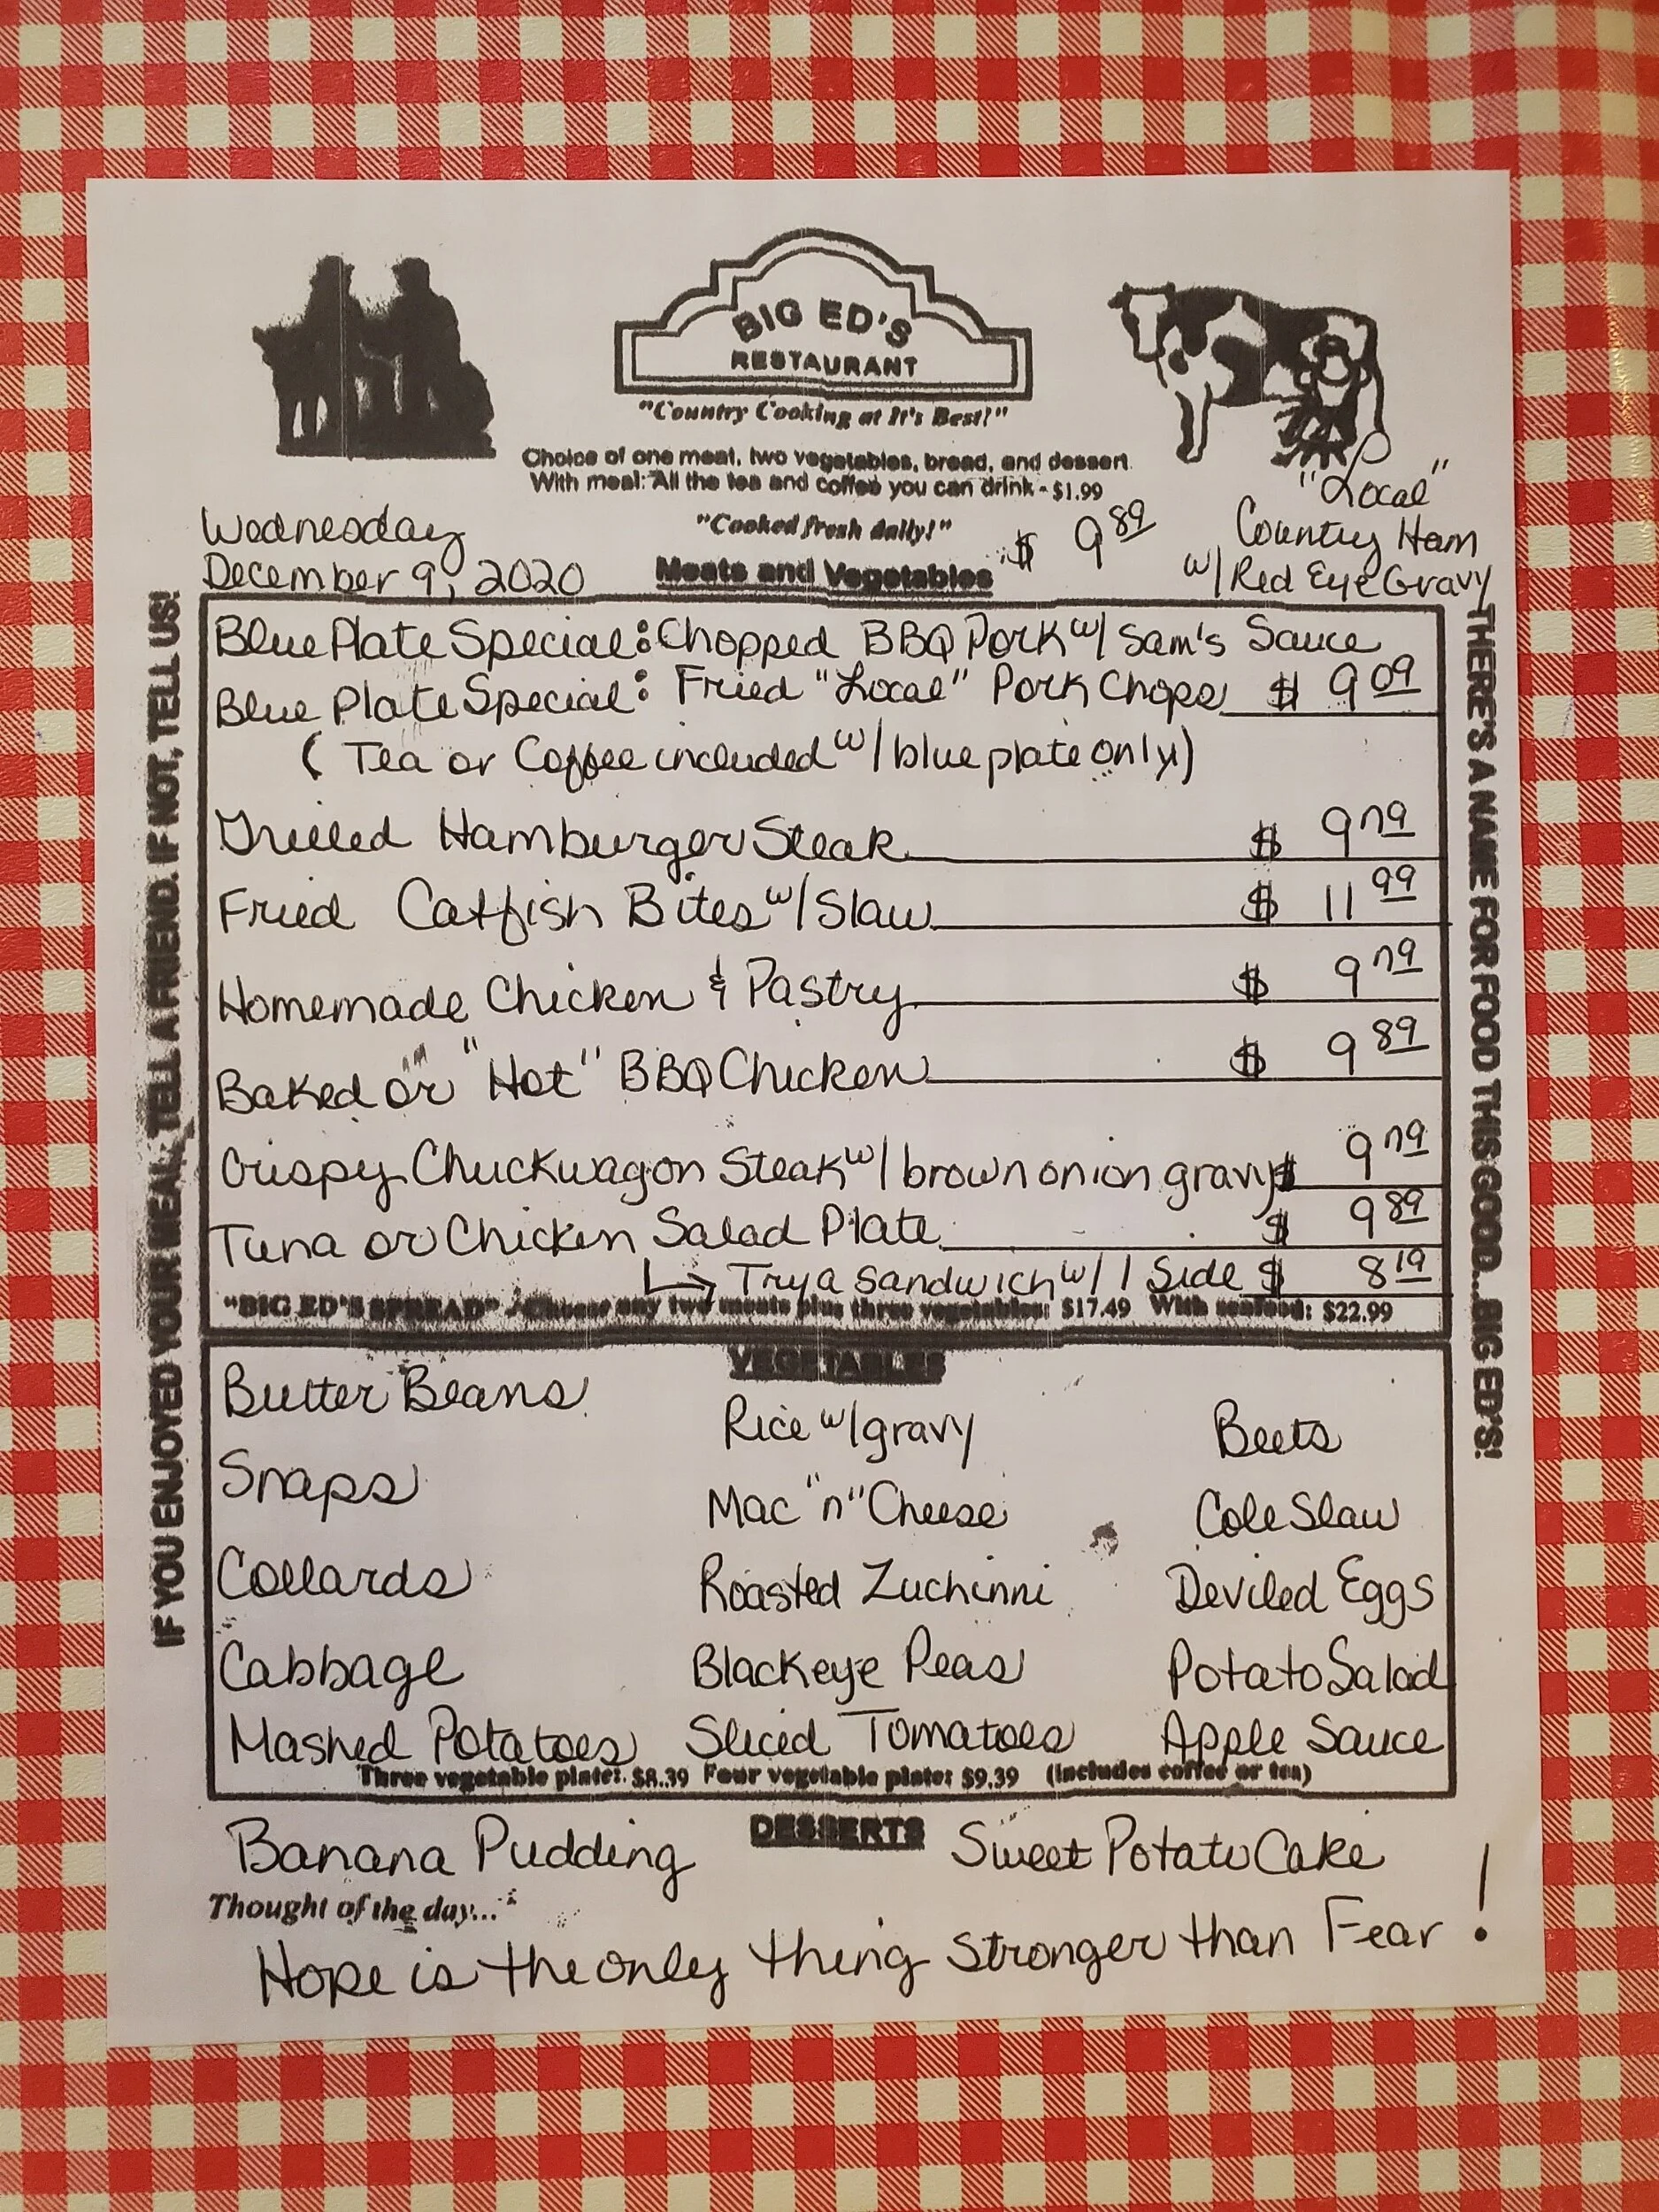 BIG ED'S
RESTAURANT
"Country Cooking at It's Best!"
Choice of one meat, two vegetables, bread, and dessert.
With meal: All the tea and coffee you can drink - $1.99
"Cooked fresh daily!"
Wednesday
December 9, 2020
Meats and Vegetables
$ 9.89
"Local"
Country Ham
w/ Red Eye Gravy
IF YOU ENJOYED YOUR MEAL, TELL A FRIEND. IF NOT, TELL US!
THERE'S A NAME FOR FOOD THIS GOOD...BIG ED'S!
Blue Plate Special: Chopped BBQ Pork w/ Sam's Sauce
Blue Plate Special: Fried "Local" Pork Chops $ 9 09
( Tea or Coffee included w/ blue plate only!)
Grilled Hamburger Steak $ 9 79
Fried Catfish Bites w/ Slaw $ 11 99
Homemade Chicken & Pastry $ 9 79
Baked or "Hot" BBQ Chicken $ 9 89
Crispy Chuckwagon Steak w/ brown onion gravy $ 9 79
Tuna or Chicken Salad Plate $ 9 89
Try a sandwich w/ 1 Side $ 8 19
"BIG ED'S SPREAD" - Choose any two meats plus three vegetables: $17.49 With seafood: $22.99
VEGETABLES
Butter Beans Rice w/ gravy Beets
Snaps Mac "n" Cheese Cole Slaw
Collards Roasted Zuchinni Deviled Eggs
Cabbage Blackeye Peas Potato Salad
Mashed Potatoes Sliced Tomatoes Apple Sauce
Three vegetable plate: $8.39 Four vegetable plate: $9.39 (Includes coffee or tea)
DESSERTS
Banana Pudding Sweet Potato Cake
Thought of the day...
Hope is the only thing Stronger than Fear!